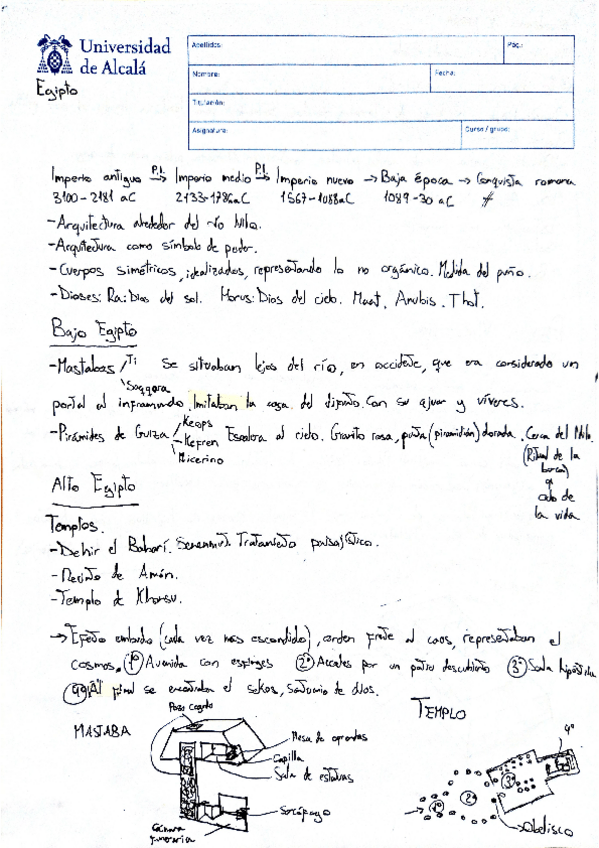 Universidad
de Alcalá
Apellidos:
Pág.:
Nombre:
Fecha:
Titulación:
Asignatura:
Curso / grupo:
Egipto
Imperio antiguo P.I. → Imperio medio P.I. → Imperio nuevo → Baja época → Conquista romana
3100-2181 aC 2133-1786aC 1567-1088aC 1089-30 aC
-Arquitectura alrededor del río Nilo.
-Arquitectura como símbolo de poder.
-Cuerpos simétricos, idealizados, representando lo no orgánico. Medida del puño.
-Dioses: Ra: Dios del sol. Horus: Dios del cielo. Maat, Anubis. Thot.
Bajo Egipto
-Mastabas Ti Se situaban lejos del río, en occidente, que era considerado un
Saqqara
portal al inframundo. Imitaban la casa del difunto. Con su ajuar y víveres.
-Pirámides de Guiza Keops
Kefren Escalera al cielo. Granito rosa, punta (piramidión) dorada. Cerca del Nilo.
Micerino
(Ritual de la
barca)
ciclo de
la vida
Alto Egipto
Templos.
-Dehir el Bahari. Senenmut. Tratamiento paisajístico.
-Recinto de Amón.
-Templo de Khonsu.
→ Efecto embudo (cada vez más escondido), orden frente al caos, representaban el
cosmos. 1º Avenida con esfinges 2º Accedes por un patio descubierto 3º Sala hipóstila
4º Al final se encontraba el sekos, santuario de dios.
MASTABA
Pozo cegado
Mesa de ofrendas
Capilla
Sala de estatuas
Sarcófago
Cámara
funeraria
TEMPLO
1º
2º
3º
4º
Obelisco